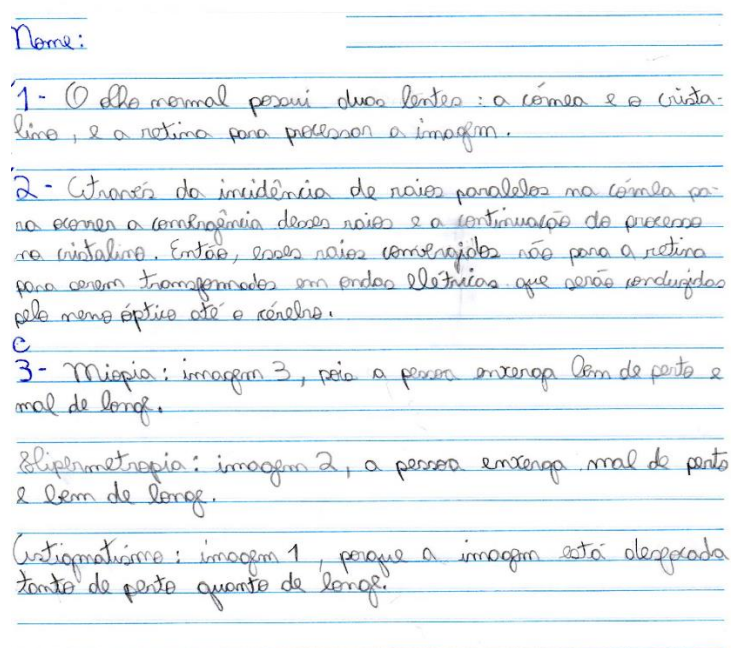 Nome:
1- O olho normal possui duas lentes: a córnea e o crista-
lino, e a retina para processar a imagem.
2- Através da incidência de raios paralelos na córnea pa-
ra ocorrer a convergência desses raios e a continuação do processo
no cristalino. Então, esses raios convergidos vão para a retina
para serem transformados em ondas elétricas que serão conduzidas
pelo nervo óptico até o cérebro.
C
3- Miopia: imagem 3, pois a pessoa enxerga bem de perto e
mal de longe.
Hipermetropia: imagem 2, a pessoa enxerga mal de perto
e bem de longe.
Astigmatismo: imagem 1, porque a imagem está desfocada
tanto de perto quanto de longe.